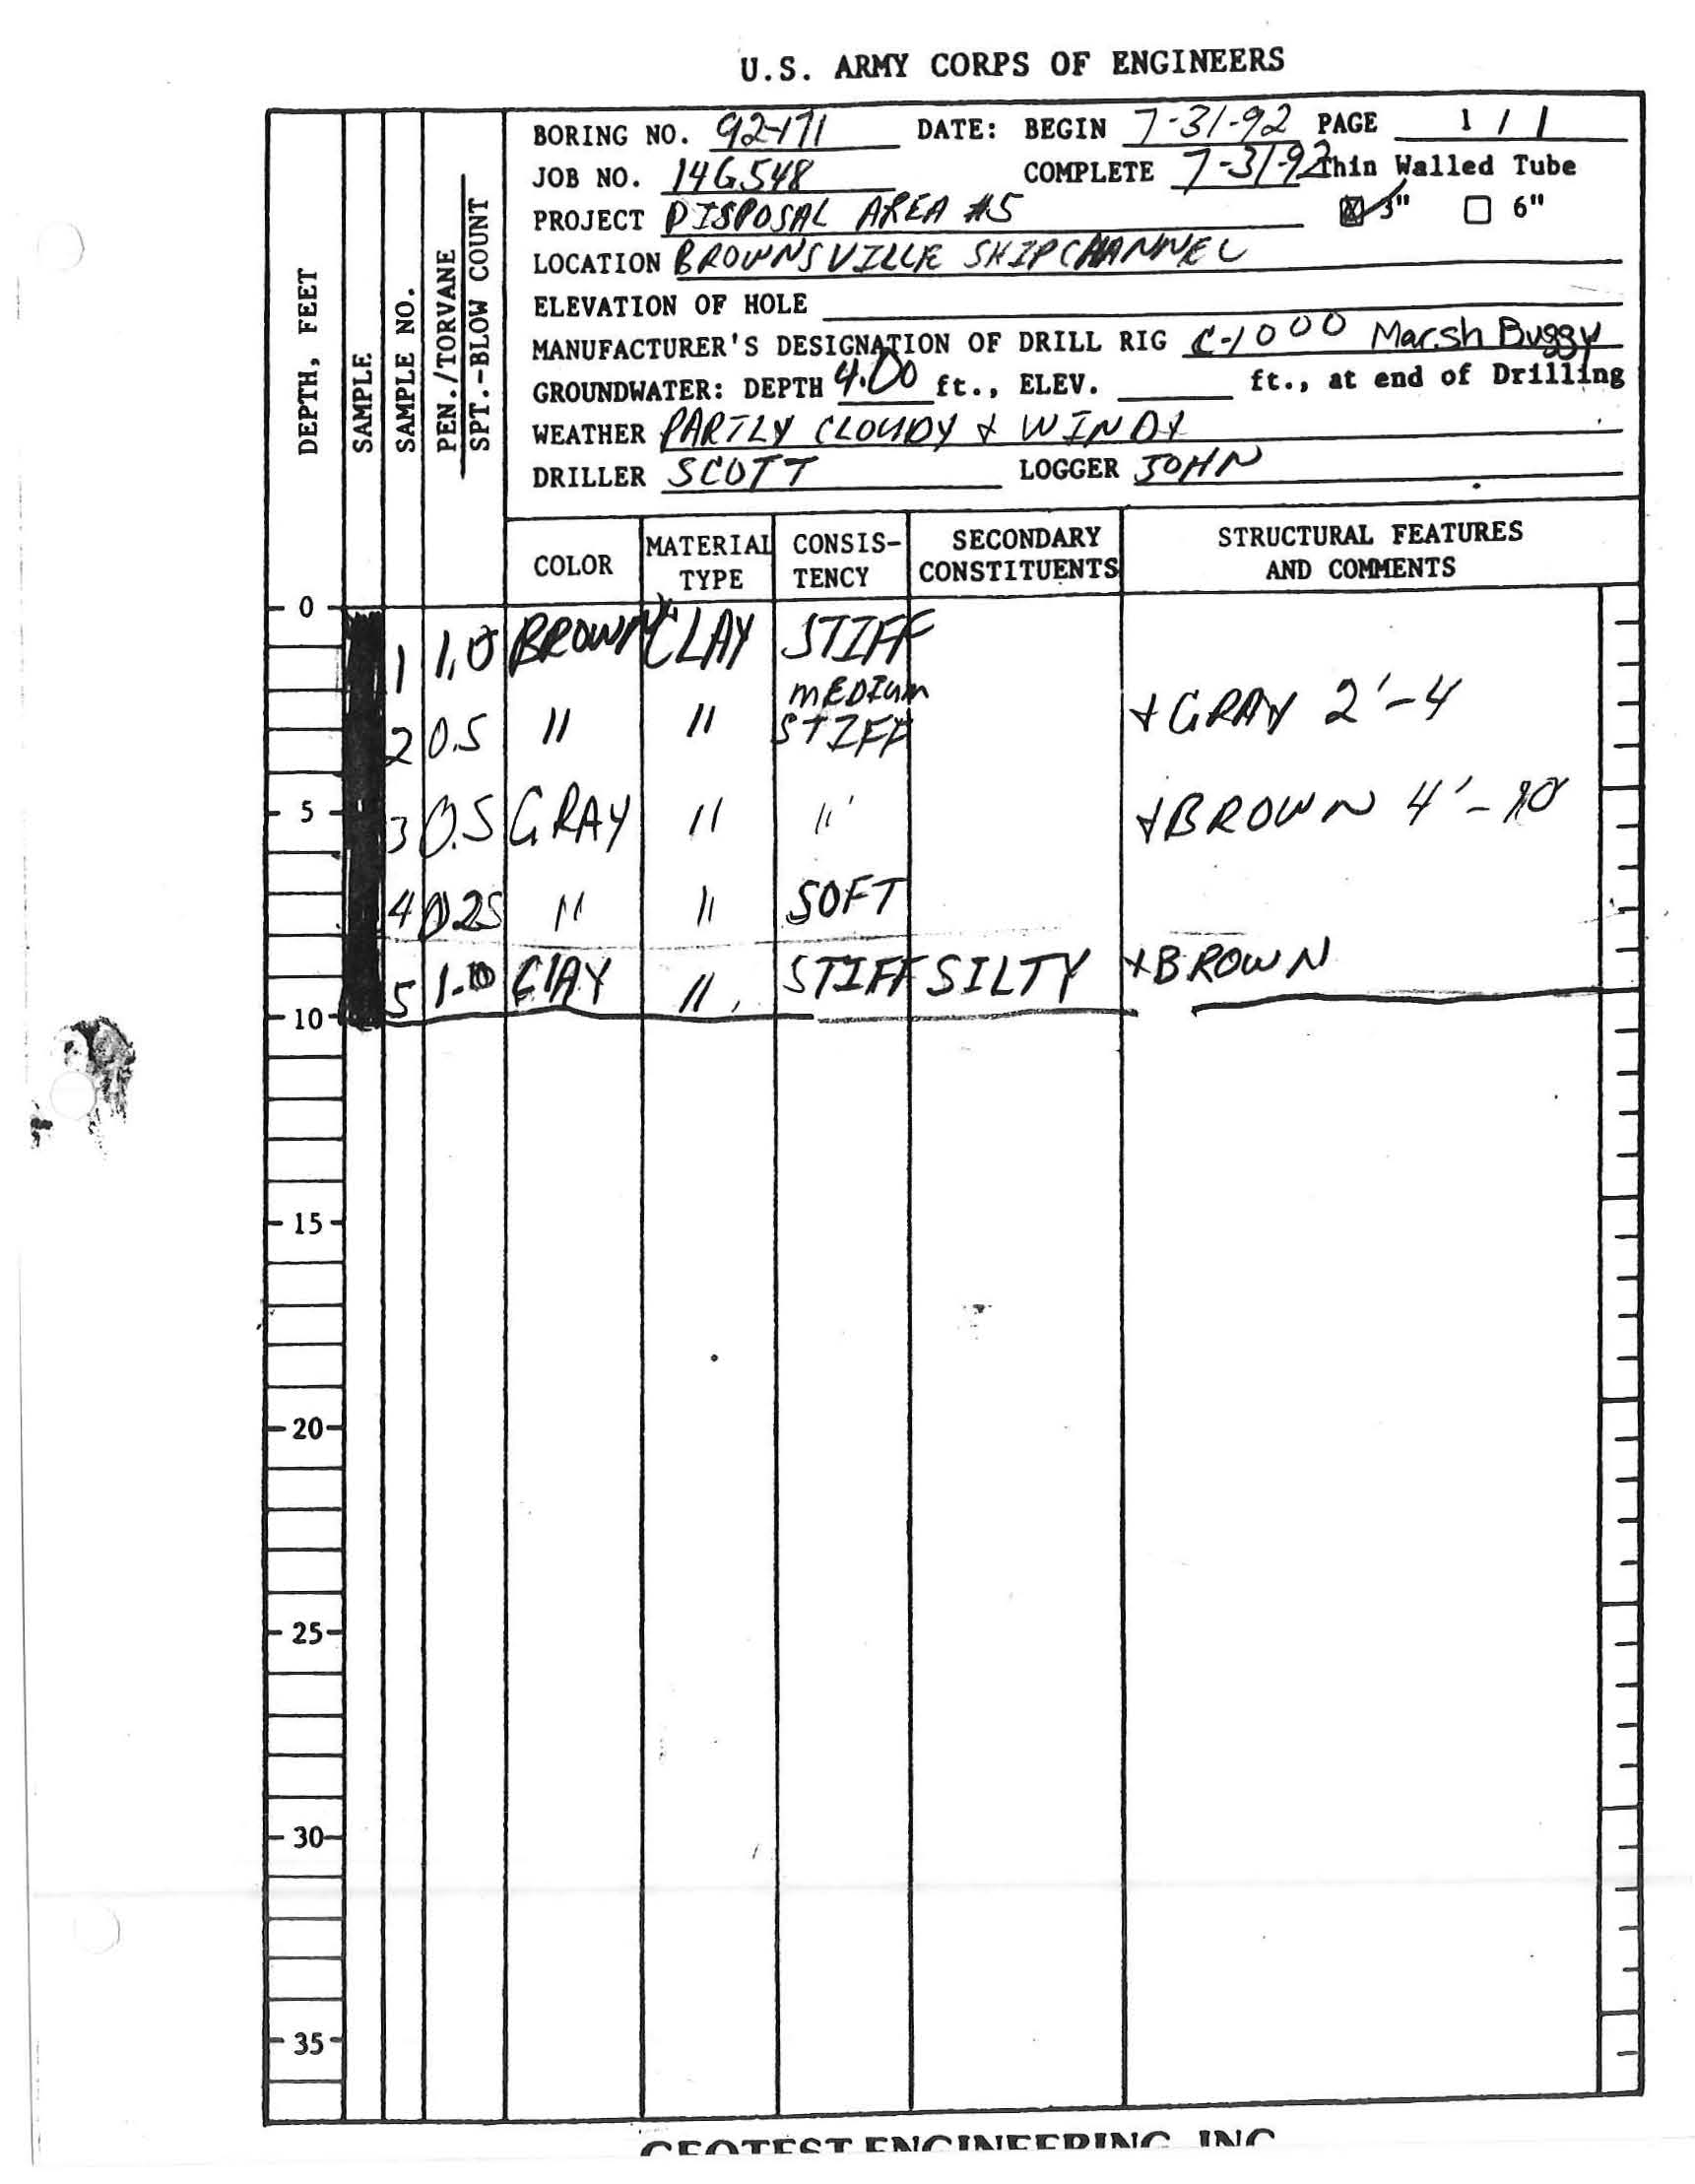 U.S. ARMY CORPS OF ENGINEERS
BORING NO. 92-171 DATE: BEGIN 7-31-92 PAGE 1 / 1
JOB NO. 14G548 COMPLETE 7-31-92 Thin Walled Tube
PROJECT DISPOSAL AREA #5 3" 6"
LOCATION BROWNSVILLE SHIPCHANNEL
ELEVATION OF HOLE
MANUFACTURER'S DESIGNATION OF DRILL RIG C-1000 Marsh Buggy
GROUNDWATER: DEPTH 4.00 ft., ELEV. ft., at end of Drilling
WEATHER PARTLY CLOUDY & WINDY
DRILLER SCOTT LOGGER JOHN
DEPTH, FEET
SAMPLE
SAMPLE NO.
PEN./TORVANE
SPT.-BLOW COUNT
COLOR MATERIAL TYPE CONSIS-TENCY SECONDARY CONSTITUENTS STRUCTURAL FEATURES AND COMMENTS
0
1 1.0 BROWN CLAY STIFF
2 0.5 " " MEDIUM STIFF + GRAY 2'-4
5
3 0.5 GRAY " " + BROWN 4'-10
4 0.25 " " SOFT
5 1.0 GRAY " STIFF SILTY + BROWN
10
15
20
25
30
35
GEOTEST ENGINEERING, INC